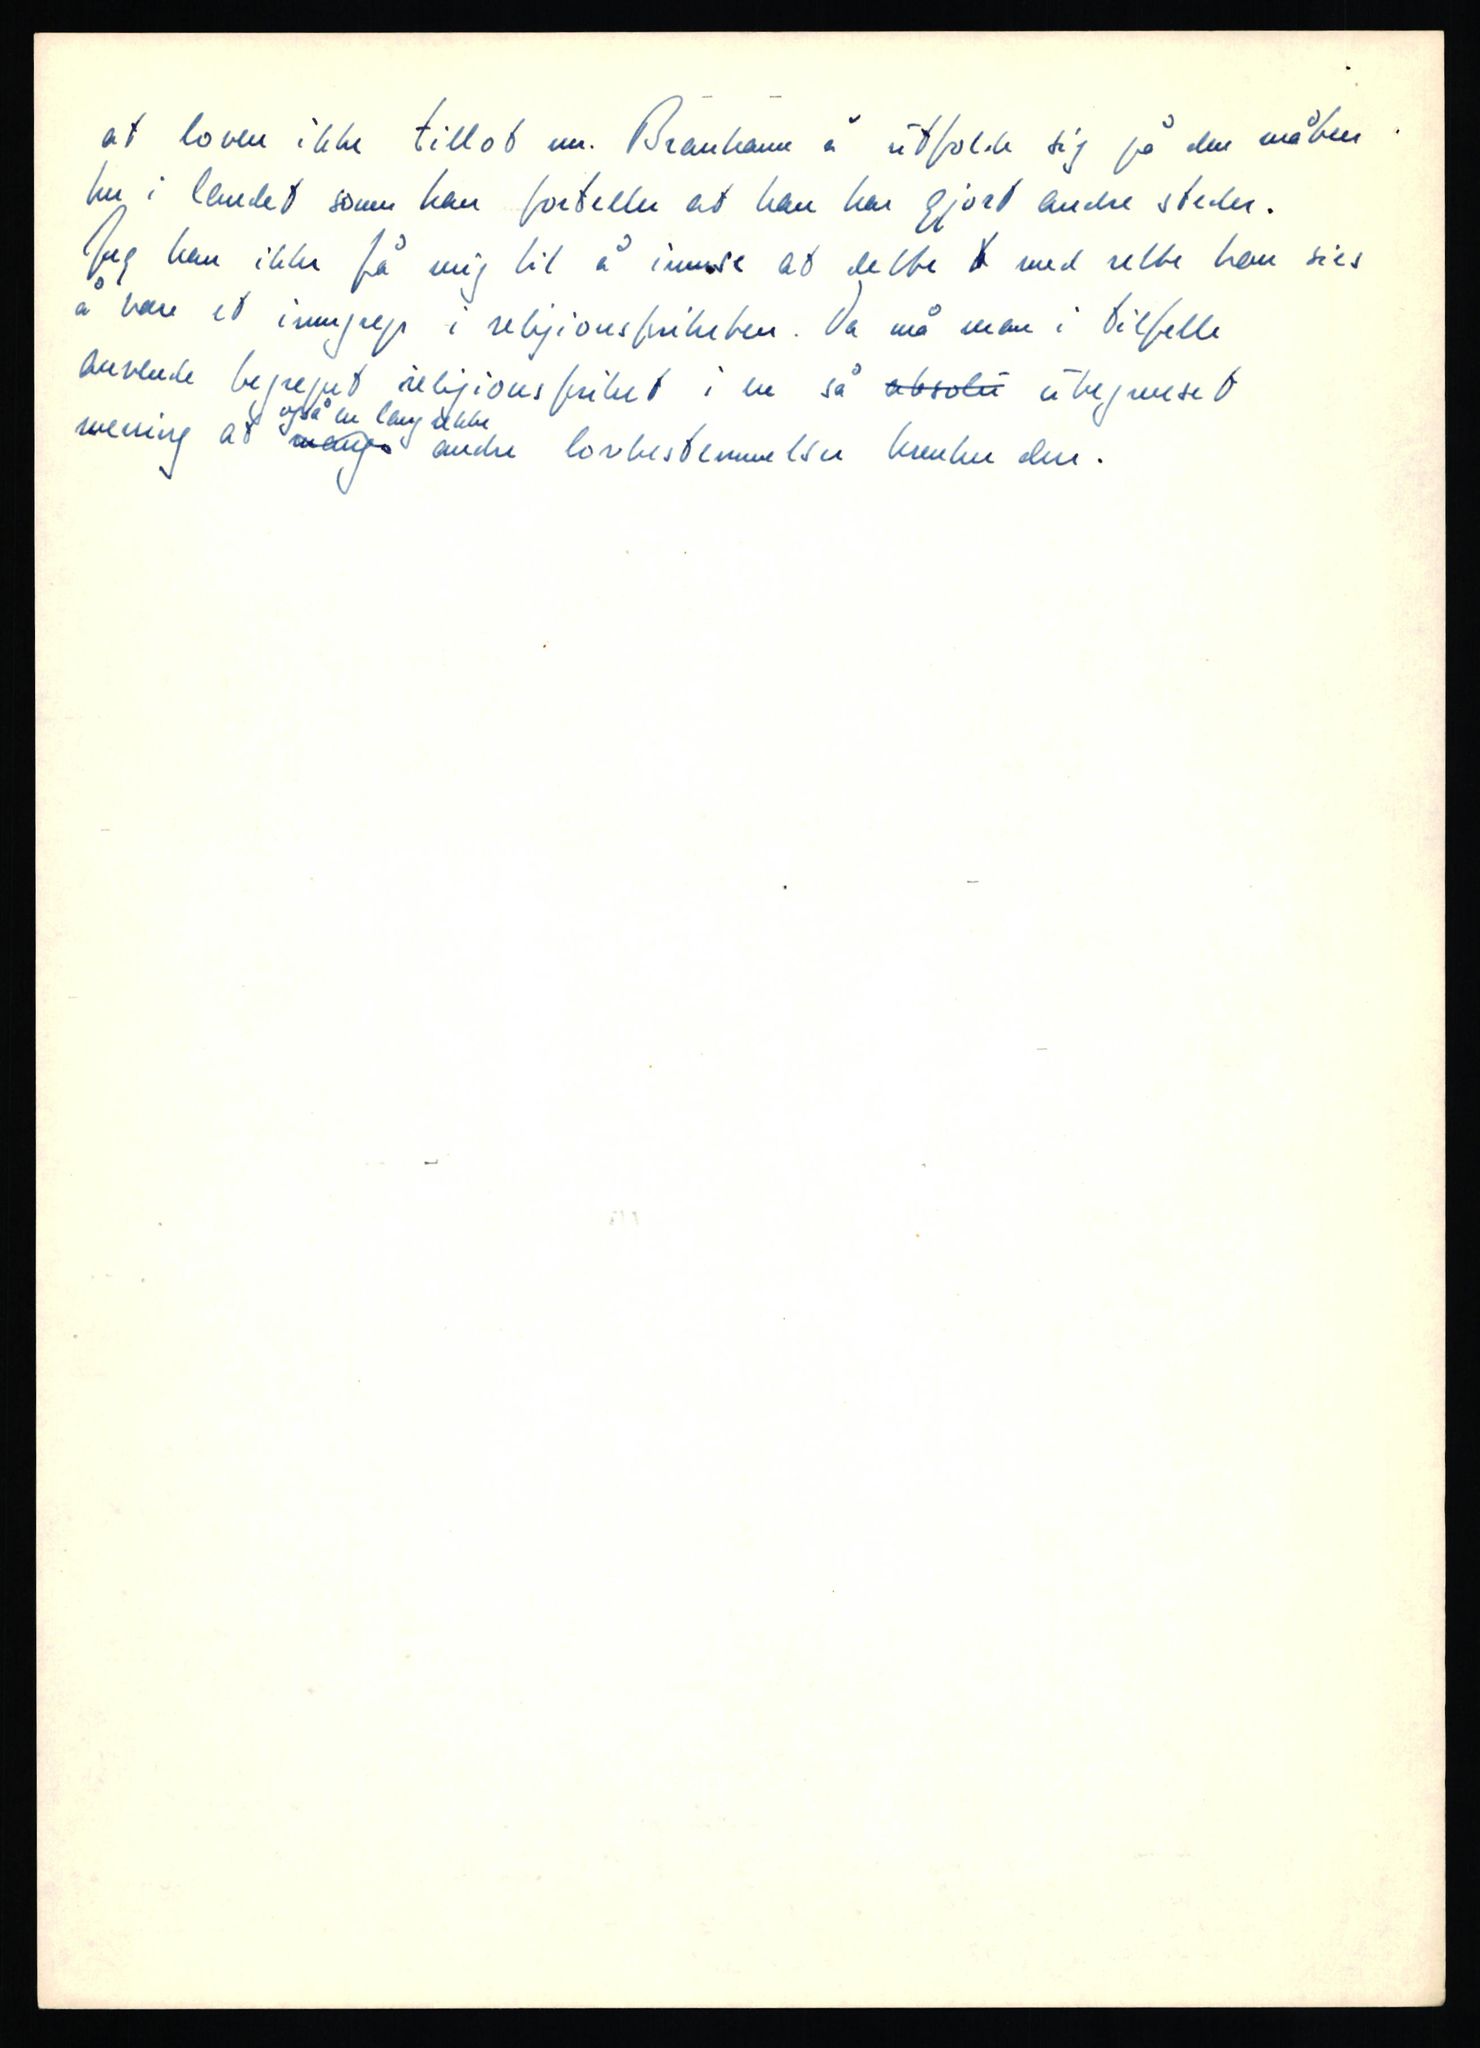 at loven ikke tillot mr. Branham å utfolde sig på den måten
her i landet som han forteller at han har gjort andre steder.
Jeg kan ikke få mig til å innse at dette t med rette kan sies
å være et inngrep i religionsfriheten. Da må man i tilfelle
anvende begrepet religionsfrihet i en så absolu ubegrenset
også en lang rekke
mening at mange andre lovbestemmelser krenker den.